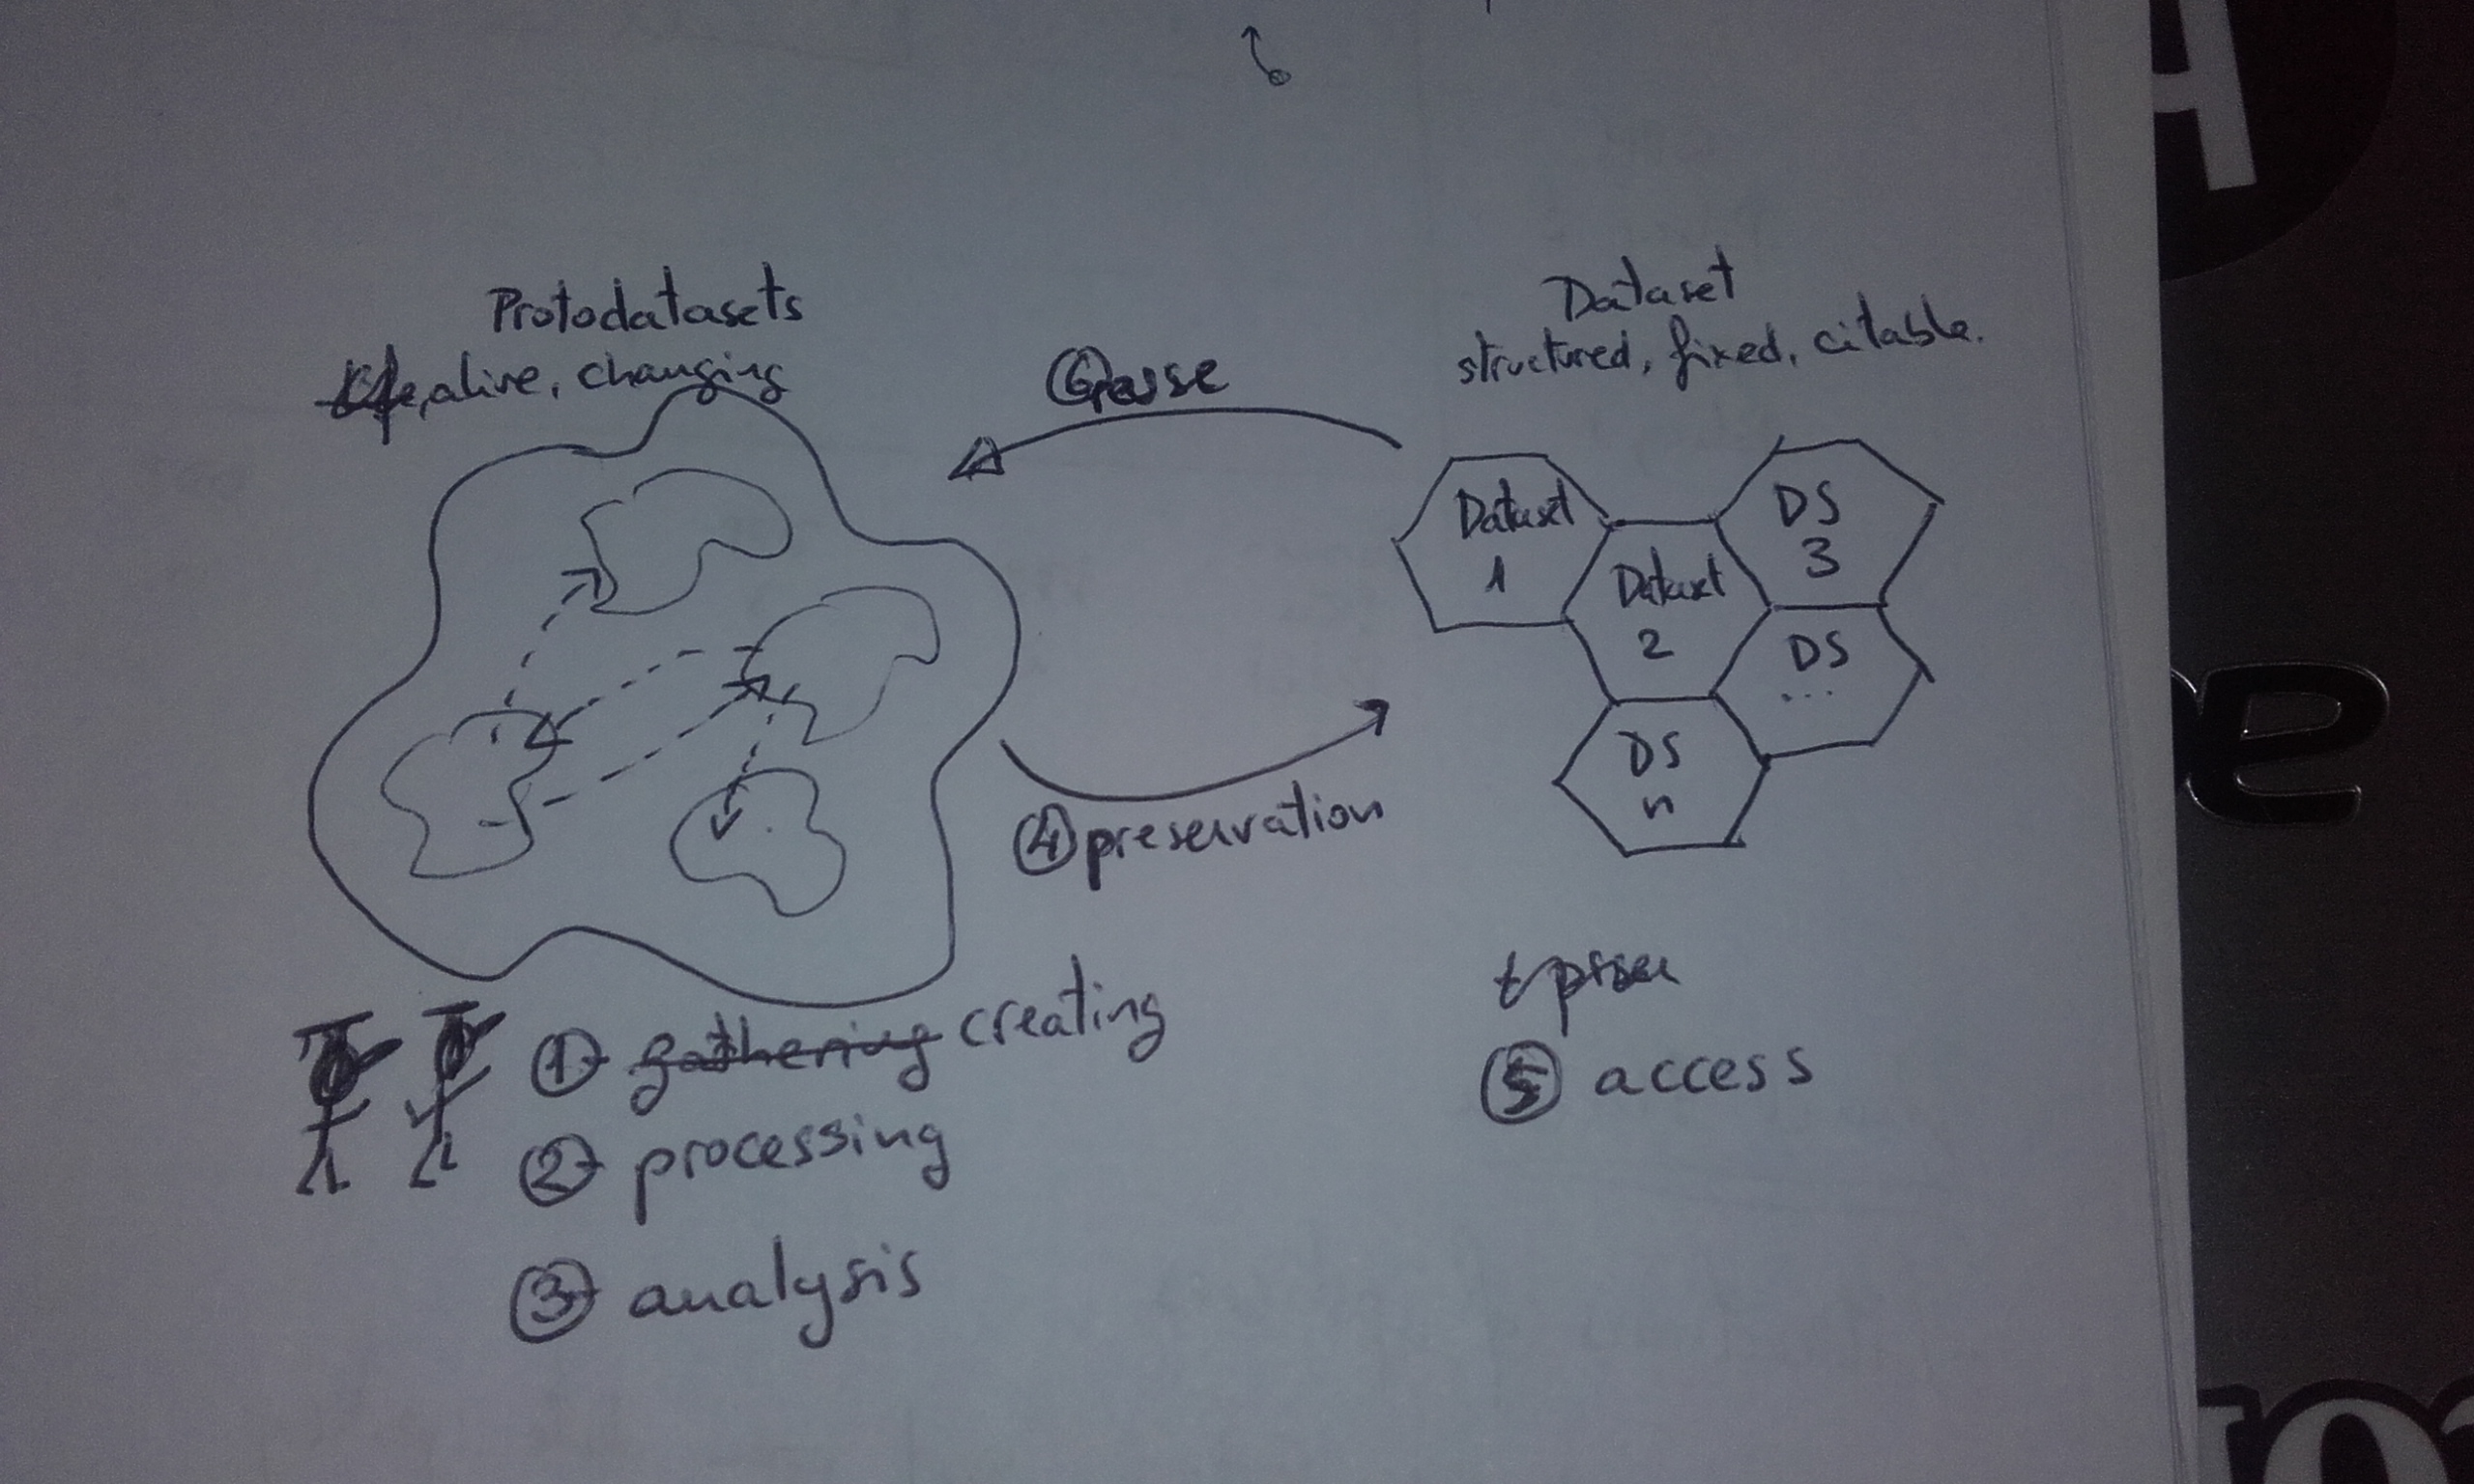 Protodatasets
alive, changing
Dataset
structured, fixed, citable.
⑥ reuse
Dataset
1
Dataset
2
DS
3
DS
...
DS
n
④ preservation
① gathering creating
② processing
③ analysis
⑤ access
A
e